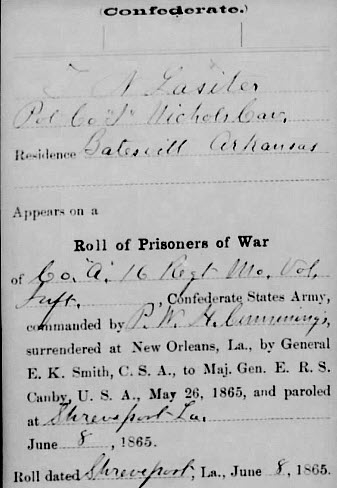 (Confederate.)
N Lasiter
Co "I" Nichols Cav,
Residence Batesvill Arkansas
Appears on a
Roll of Prisoners of War
of Co. "A" 16 Regt Mo. Vol,
Inft. , Confederate States Army,
commanded by P. W. H. Cummings,
surrendered at New Orleans, La., by General
E. K. Smith, C. S. A., to Maj. Gen. E. R. S.
Canby, U. S. A., May 26, 1865, and paroled
at Shreveport La.
June 8 , 1865.
Roll dated Shreveport, La., June 8, 1865.